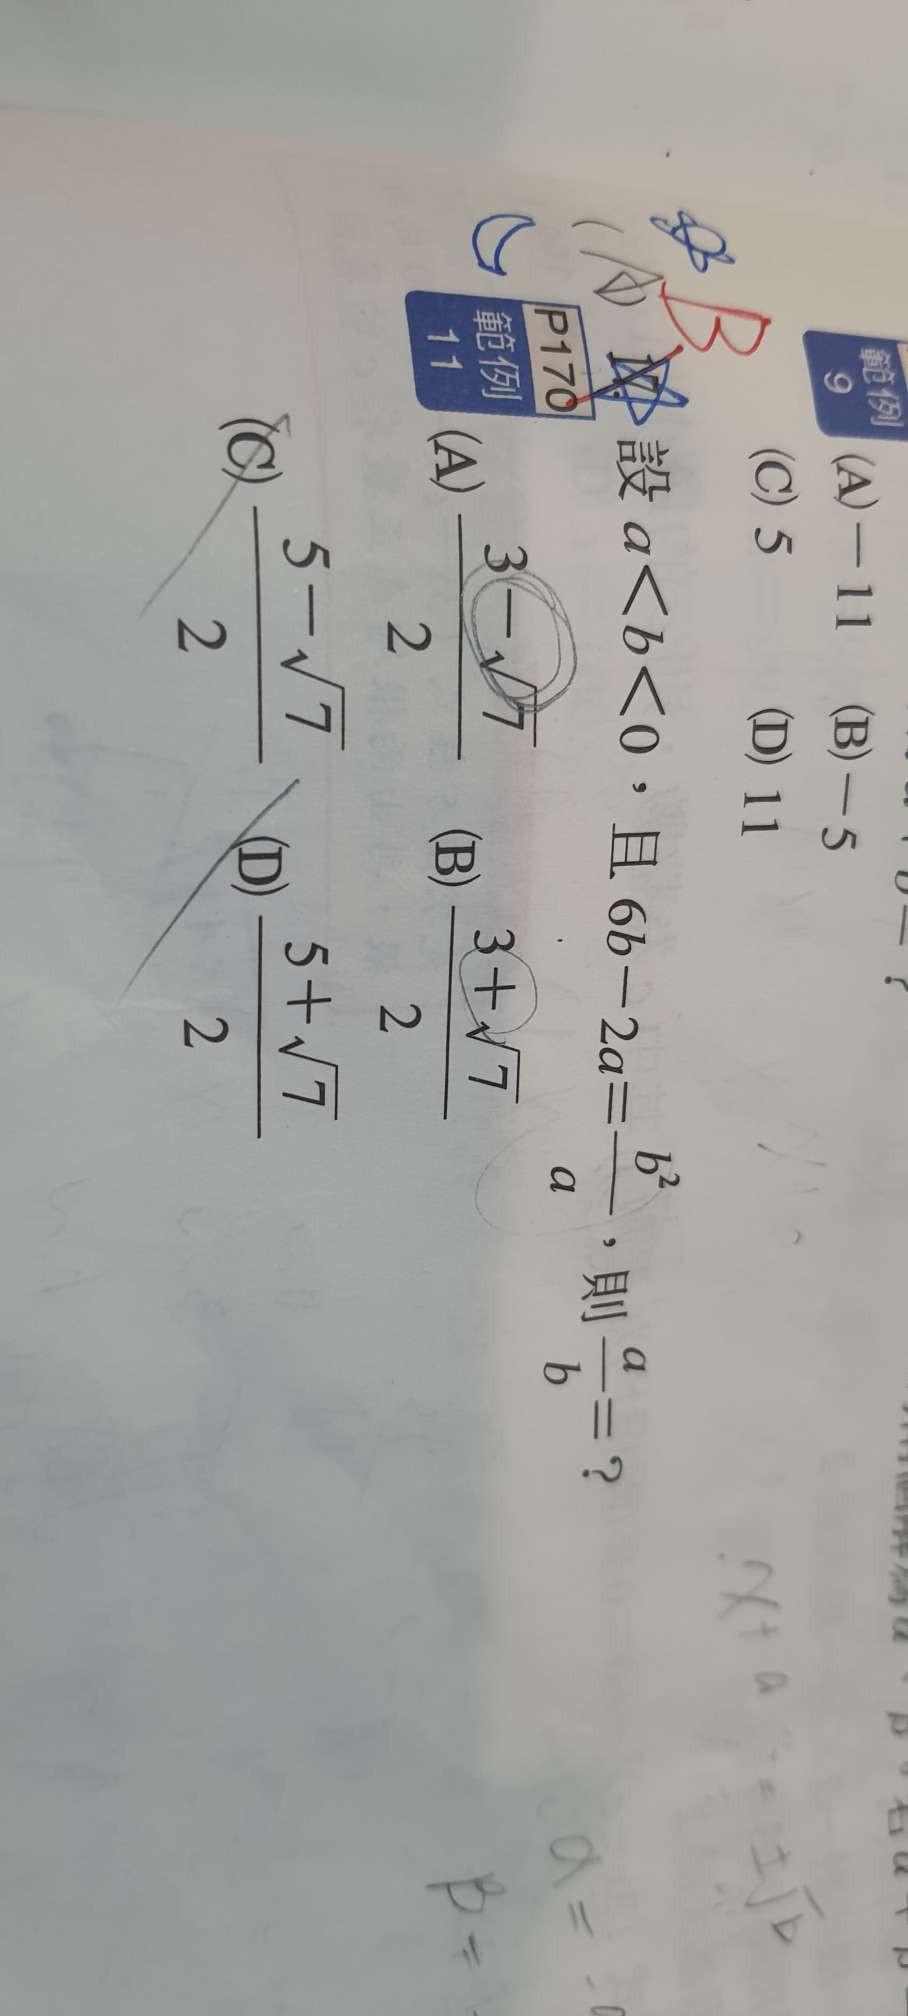 範例
9
(A) −11 (B) −5
(C) 5 (D) 11
B
17. 設 a<b<0，且 6b−2a=b²/a，則 a/b=？
P170
範例
11
(A) (3−√7)/2 (B) (3+√7)/2
(C) (5−√7)/2 (D) (5+√7)/2
x+a=±√b
a=
β=